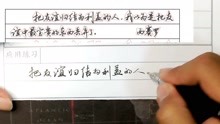 把友谊归结为利益的人，我以为是把友
谊中最宝贵的东西丢弃了。 西塞罗
把友谊归结为利益的人